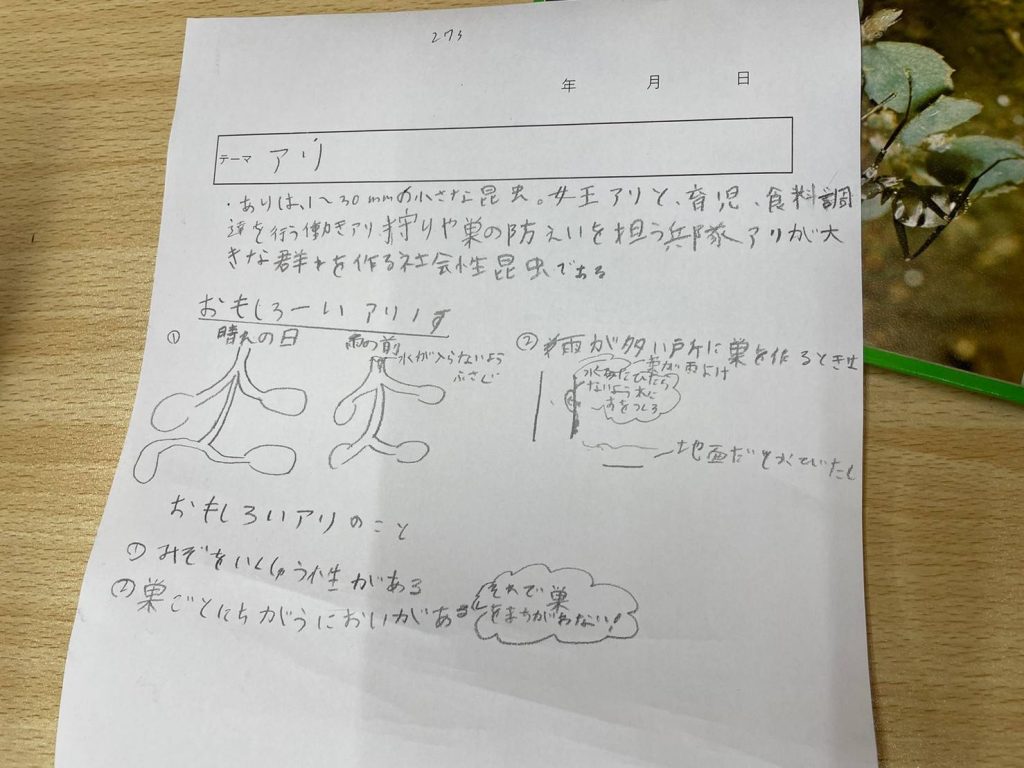 273
年 月 日
テーマ アリ
・ありは、1〜30mmの小さな昆虫。女王アリと、育児、食料調
達を行う働きアリ狩りや巣の防えいを担う兵隊アリが大
きな群れを作る社会性昆虫である
おもしろーいアリノす
① 晴れの日
雨の前
水が入らないよう
ふさぐ
② 雨が多い所に巣を作るとき
葉が雨よけ
水
ないよう木に
すをつくる
地面だと
おもしろいアリのこと
① みぞをいくしゅう性がある
② 巣ごとにちがうにおいがある
それで巣
をまちがわない!